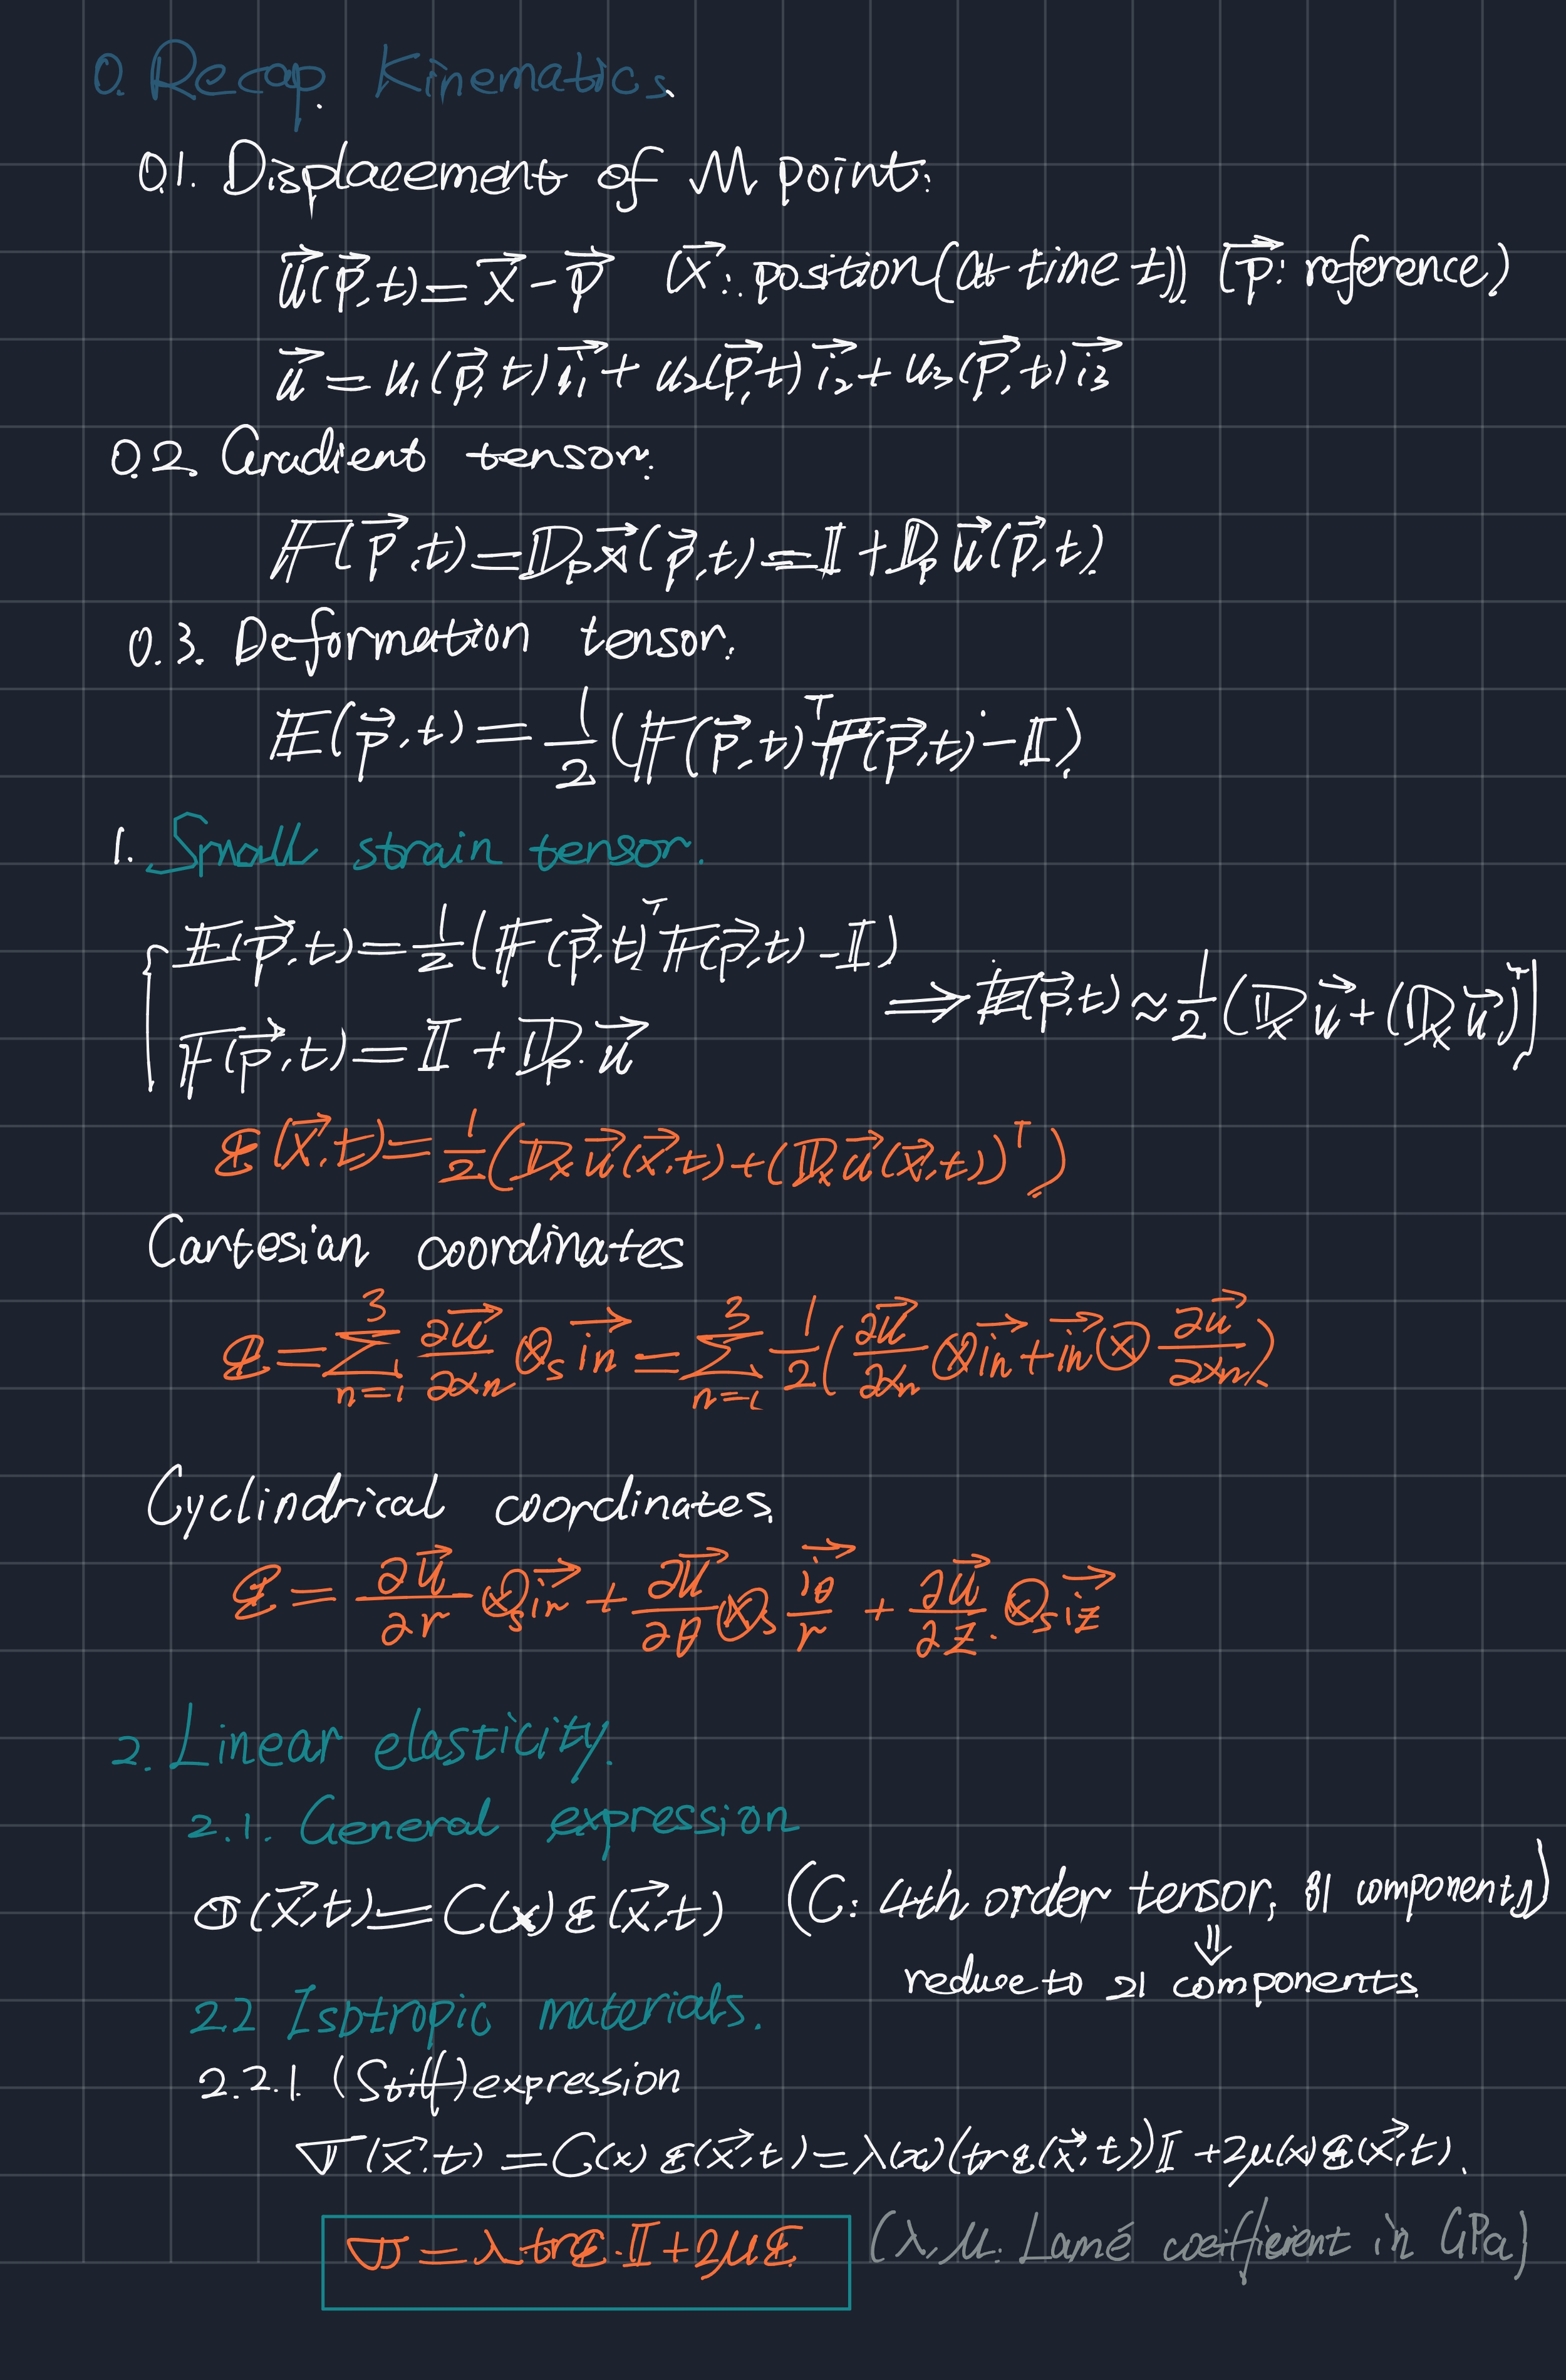 0. Recap. Kinematics.
0.1. Displacement of M point:
u⃗(p⃗,t) = x⃗ − p⃗ (x⃗: position (at time t)) (p⃗: reference)
u⃗ = u₁(p⃗,t)i₁⃗ + u₂(p⃗,t)i₂⃗ + u₃(p⃗,t)i₃⃗
0.2. Gradient tensor:
𝔽(p⃗,t) = 𝔻ₚx⃗(p⃗,t) = 𝕀 + 𝔻ₚu⃗(p⃗,t)
0.3. Deformation tensor:
𝔼(p⃗,t) = 1/2 (𝔽(p⃗,t)ᵀ𝔽(p⃗,t) − 𝕀)
1. Small strain tensor.
𝔼(p⃗,t) = 1/2 (𝔽(p⃗,t)ᵀ𝔽(p⃗,t) − 𝕀)
𝔽(p⃗,t) = 𝕀 + 𝔻ₚ.u⃗
⟹ 𝔼(p⃗,t) ≈ 1/2 (𝔻ₓu⃗ + (𝔻ₓu⃗)ᵀ]
ε(x⃗,t) = 1/2 (𝔻ₓu⃗(x⃗,t) + (𝔻ₓu⃗(x⃗,t))ᵀ)
Cartesian coordinates
ε = ∑ₙ₌₁³ ∂u⃗/∂xₙ ⊗ₛ iₙ⃗ = ∑ₙ₌₁³ 1/2 (∂u⃗/∂xₙ ⊗ iₙ⃗ + iₙ⃗ ⊗ ∂u⃗/∂xₙ)
Cyclindrical coordinates.
ε = ∂u⃗/∂r ⊗ₛ i_r⃗ + ∂u⃗/∂θ ⊗ₛ i_θ⃗/r + ∂u⃗/∂z. ⊗ₛ i_z⃗
2. Linear elasticity.
2.1. General expression
σ(x⃗,t) = C(x) ε(x⃗,t) (C: 4th order tensor, 81 components)
⇓
reduce to 21 components.
2.2 Isotropic materials.
2.2.1. (Stiff) expression
σ(x⃗,t) = C(x) ε(x⃗,t) = λ(x)(tr ε(x⃗,t))𝕀 + 2μ(x) ε(x⃗,t).
σ = λ tr ε · 𝕀 + 2μ ε (λ, μ: Lamé coeifficient in GPa)